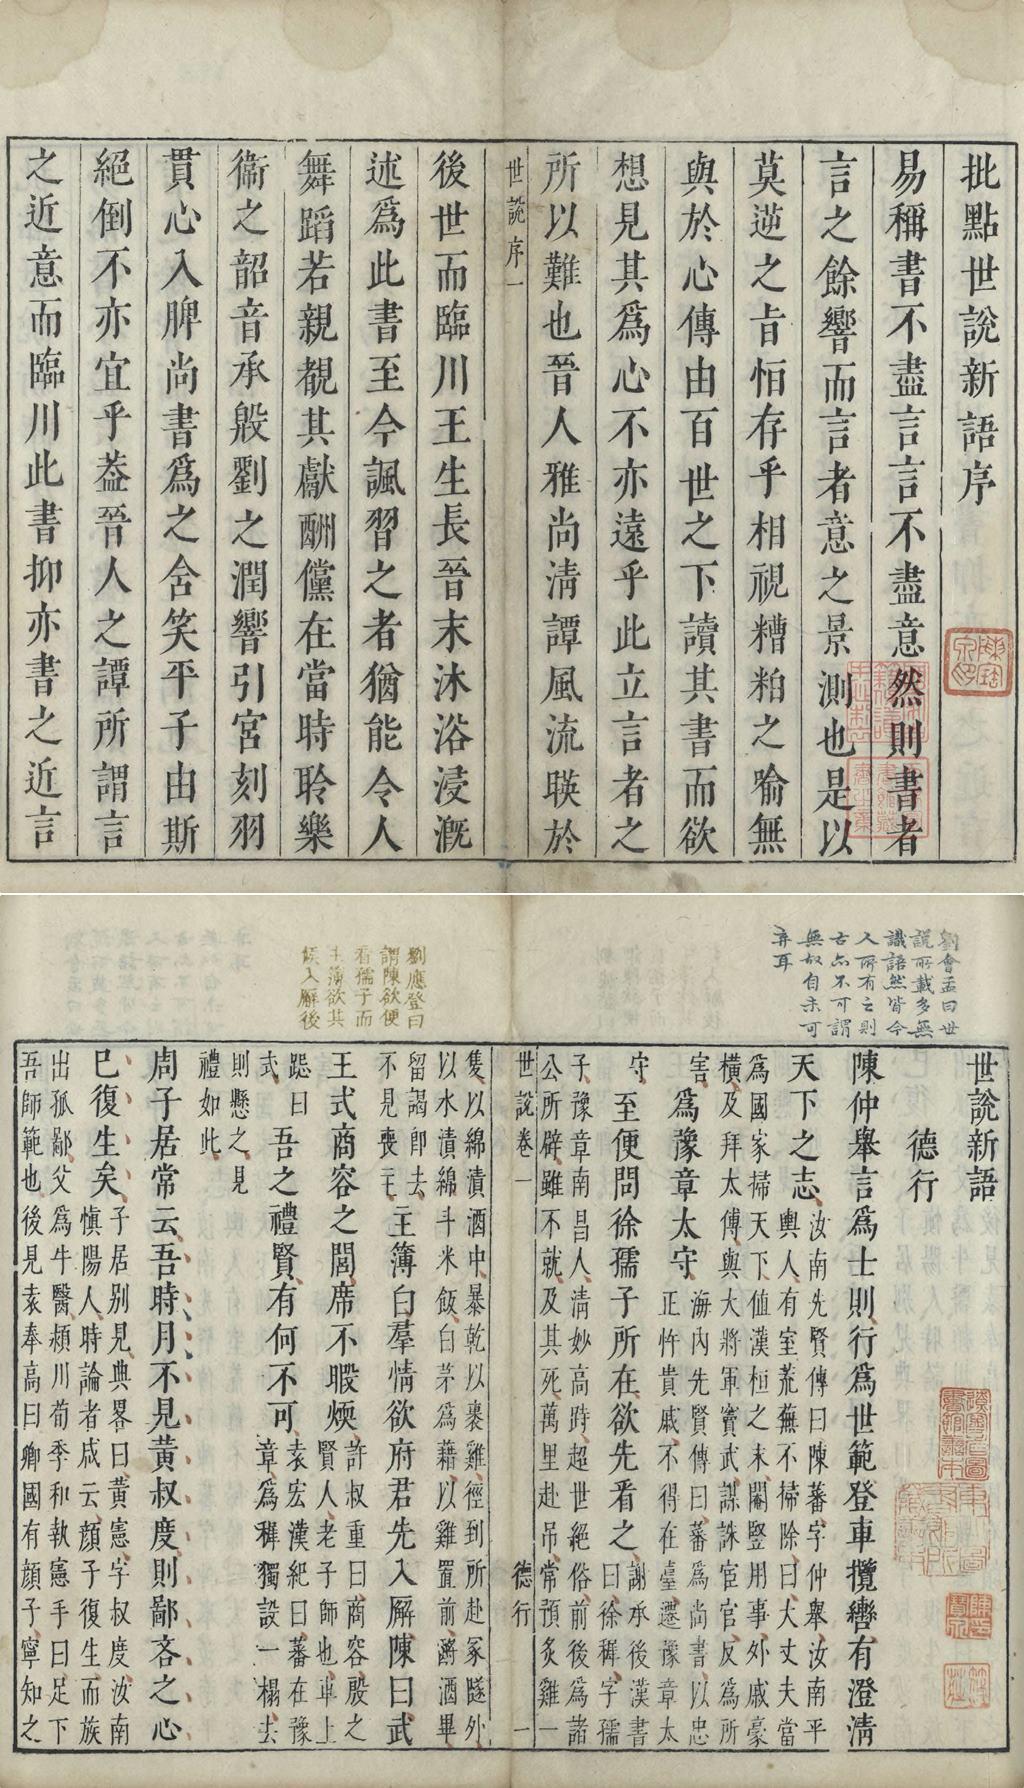 批點世說新語序
易稱書不盡言言不盡意然則書者
言之餘響而言者意之景測也是以
莫逆之旨恒存乎相視糟粕之喻無
與於心傳由百世之下讀其書而欲
想見其爲心不亦遠乎此立言者之
所以難也晉人雅尚淸譚風流暎於
世說序 一
後世而臨川王生長晉末沐浴浸漑
述爲此書至今諷習之者猶能令人
舞蹈若親覩其獻酬儻在當時聆樂
衞之韶音承殷劉之潤響引宮刻羽
貫心入脾尚書爲之含笑平子由斯
絕倒不亦宜乎葢晉人之譚所謂言
之近意而臨川此書抑亦書之近言
劉會孟曰世
說所載多無
識語然皆今
人所有之則
古亦不可謂
無故自未可
弃耳
劉應登曰
謂陳欲便
看孺子而
主簿欲其
候入廨後
世說新語
德行
陳仲舉言爲士則行爲世範登車攬轡有澄淸
天下之志汝南先賢傳曰陳蕃字仲舉汝南平
輿人有室荒蕪不掃除曰大丈夫當
爲國家掃天下値漢桓之末閹豎用事外戚豪
橫及拜太傅與大將軍竇武謀誅宦官反爲所
害
爲豫章太守海內先賢傳曰蕃爲尚書以忠
正忤貴戚不得在臺遷豫章太
守
至便問徐孺子所在欲先看之謝承後漢書
曰徐穉字孺
子豫章南昌人淸妙高跱超世絕俗前後爲諸
公所辟雖不就及其死萬里赴吊常預炙雞一
世說卷一 德行 一
隻以綿漬酒中暴乾以裹雞徑到所赴冢隧外
以水漬綿斗米飯白茅爲藉以雞置前酹酒畢
留謁卽去
不見喪主
主簿白羣情欲府君先入廨陳曰武
王式商容之閭席不暇煗許叔重曰商容殷之
賢人老子師也車上
跽曰
式
吾之禮賢有何不可袁宏漢紀曰蕃在豫
章爲穉獨設一榻去
則懸之見
禮如此
周子居常云吾時月不見黃叔度則鄙吝之心
已復生矣子居別見典畧曰黃憲字叔度汝南
愼陽人時論者咸云顏子復生而族
出孤鄙父爲牛醫潁川荀季和執憲手曰足下
吾師範也後見袁奉高曰卿國有顏子寧知之